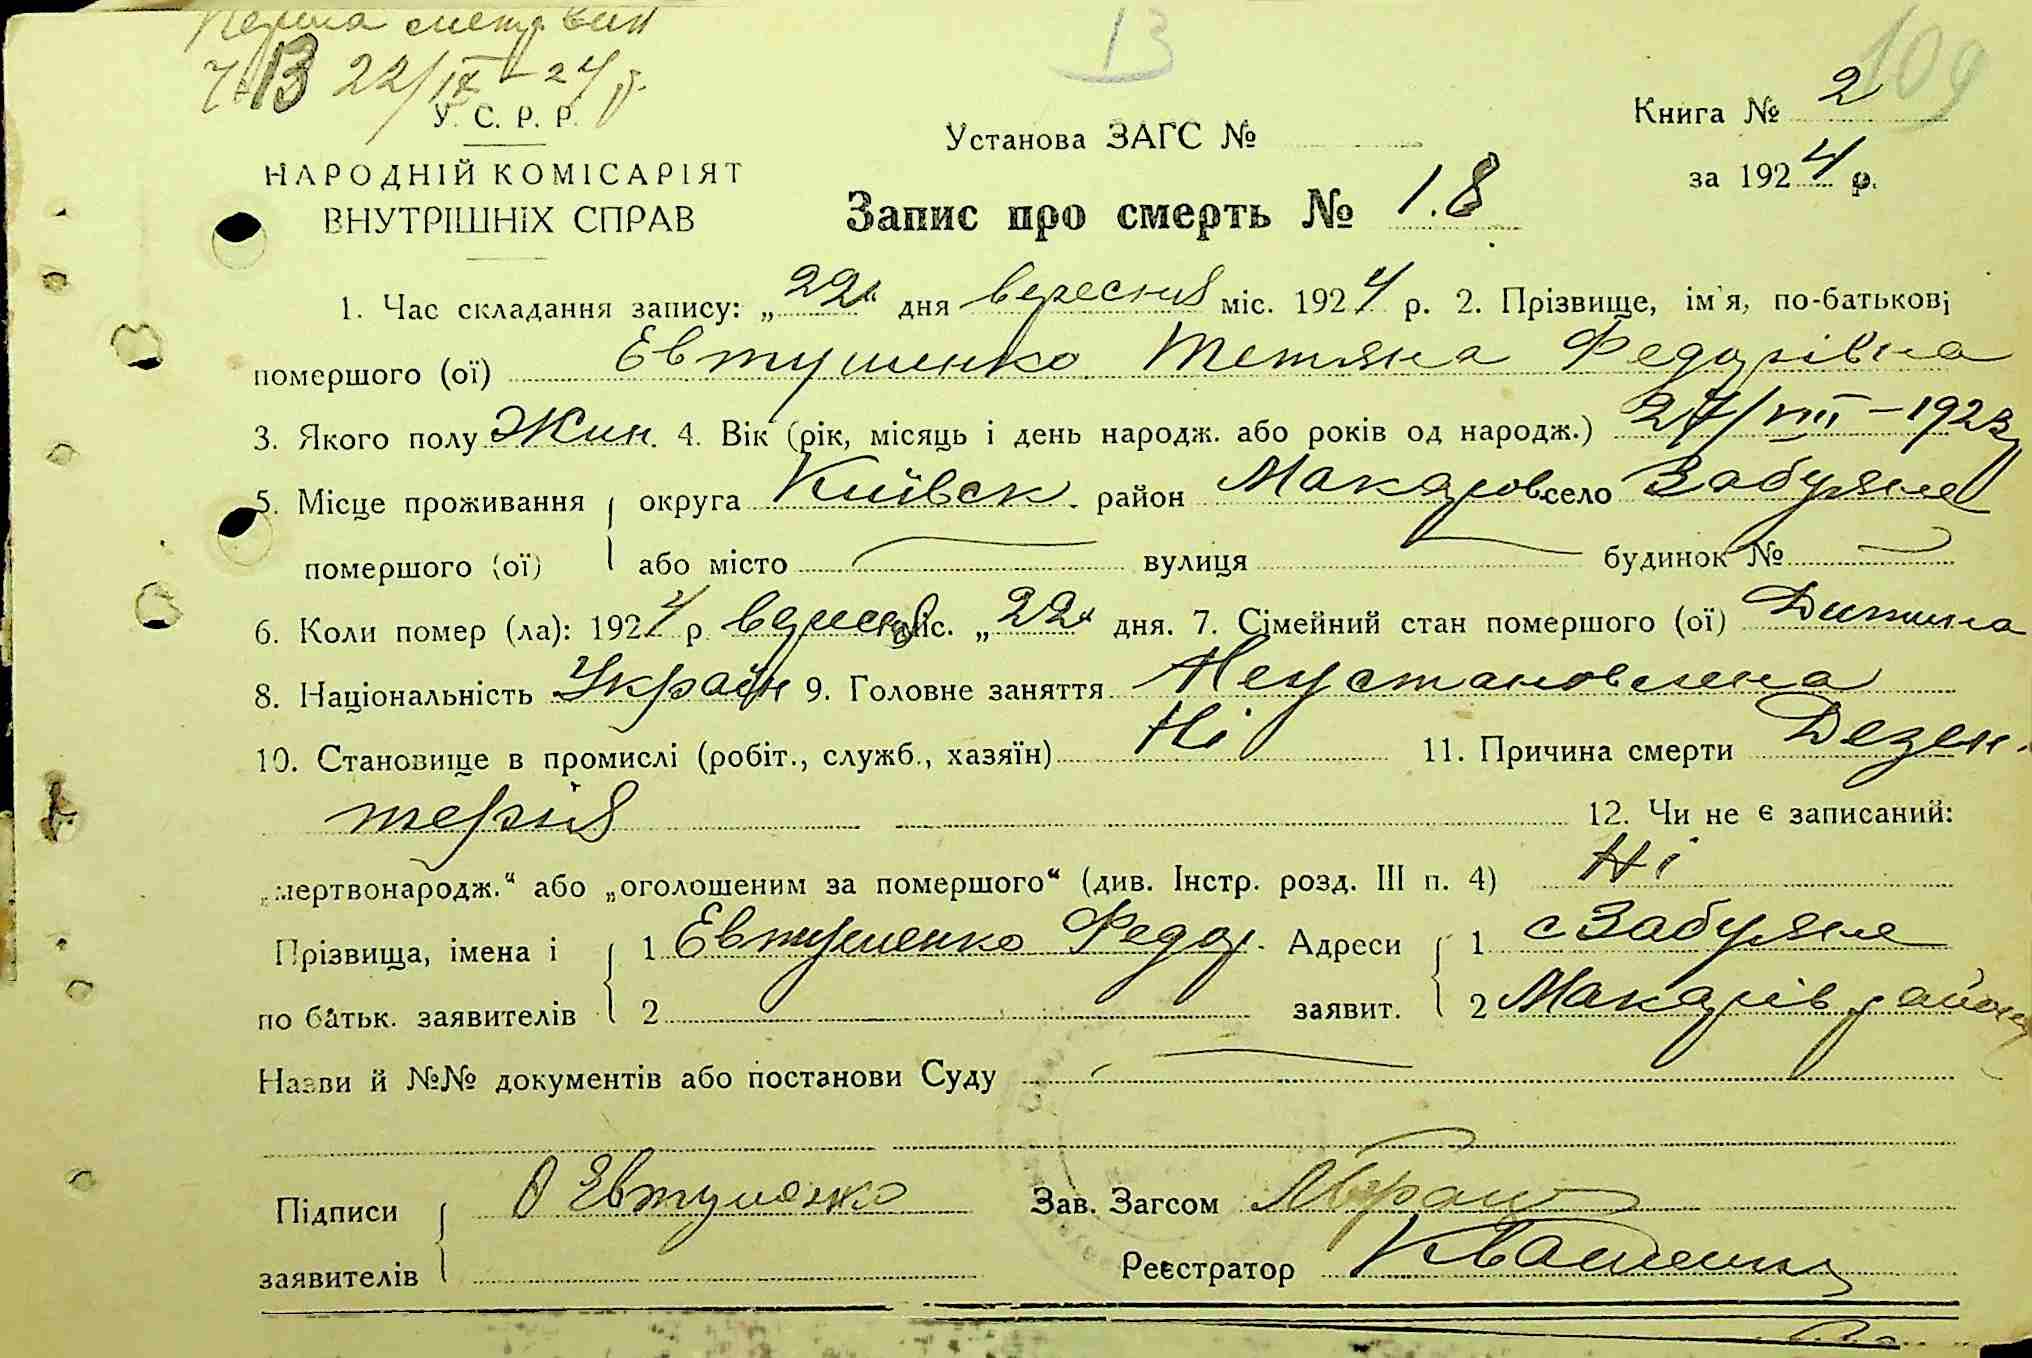 13
109
22/IX – 24 р.
У. С. Р. Р.
НАРОДНІЙ КОМІСАРІЯТ
ВНУТРІШНІХ СПРАВ
Установа ЗАГС №
Книга № 2
за 1924 р.
Запис про смерть № 18
1. Час складання запису: „22“ дня вересня міс. 1924 р. 2. Прізвище, ім'я, по-батькові
помершого (ої) Евтушенко Тетяна Федорівна
3. Якого полу Жин. 4. Вік (рік, місяць і день народж. або років од народж.) 27/VIII – 1923
5. Місце проживання округа Київск. район Макаров село Забуяне
помершого (ої) або місто вулиця будинок №
6. Коли помер (ла): 1924 р. вересня міс. „22“ дня. 7. Сімейний стан помершого (ої) Дитина
8. Національність Україн 9. Головне заняття Неустановлена
10. Становище в промислі (робіт., служб., хазяїн) Ні 11. Причина смерти Дезен-
терия 12. Чи не є записаний:
„мертвонародж.“ або „оголошеним за помершого“ (див. Інстр. розд. III п. 4) Ні
Прізвища, імена і 1 Евтушенко Федор. Адреси 1 с Забуяне
по батьк. заявителів 2 заявит. 2 Макарів району
Назви й №№ документів або постанови Суду
Підписи О Евтушенко Зав. Загсом
заявителів Реєстратор